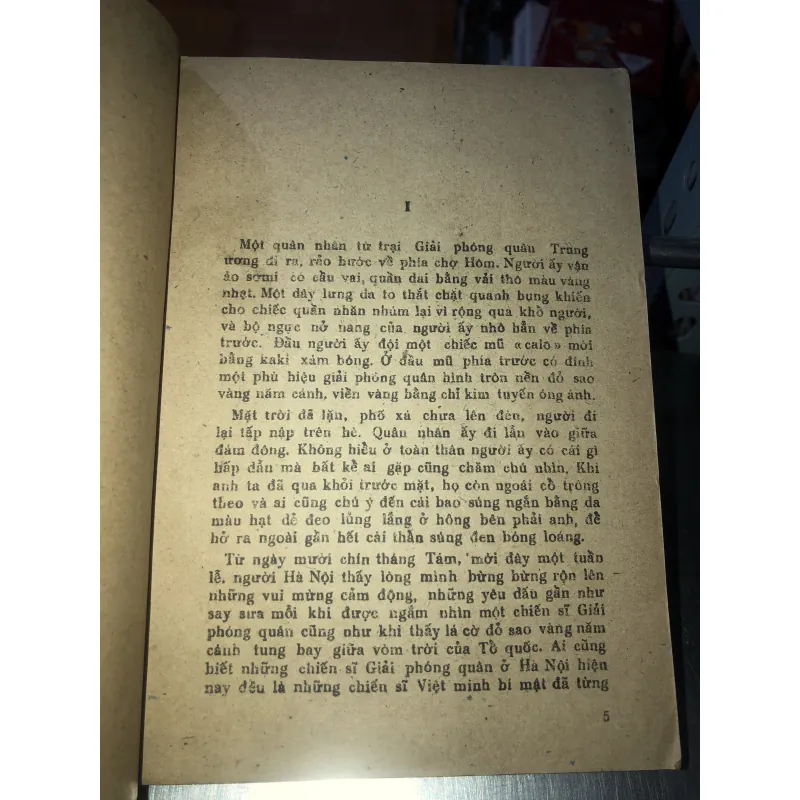 I
Một quân nhân từ trại Giải phóng quân Trung
ương đi ra, rảo bước về phía chợ Hôm. Người ấy vận
áo sơmi có cầu vai, quần dài bằng vải thô màu vàng
nhạt. Một dây lưng da to thắt chặt quanh bụng khiến
cho chiếc quần nhăn nhúm lại vì rộng quá khổ người,
và bộ ngực nở nang của người ấy nhô hẳn về phía
trước. Đầu người ấy đội một chiếc mũ «calo» mới
bằng kaki xám bóng. Ở đầu mũ phía trước có đính
một phù hiệu giải phóng quân hình tròn nền đỏ sao
vàng năm cánh, viền vàng bằng chỉ kim tuyến óng ánh.
Mặt trời đã lặn, phố xá chưa lên đèn, người đi
lại tấp nập trên hè. Quân nhân ấy đi lẩn vào giữa
đám đông. Không hiểu ở toàn thân người ấy có cái gì
hấp dẫn mà bất kể ai gặp cũng chăm chú nhìn, Khi
anh ta đã qua khỏi trước mặt, họ còn ngoái cổ trông
theo và ai cũng chú ý đến cái bao súng ngắn bằng da
màu hạt dẻ đeo lủng lẳng ở hông bên phải anh, để
hở ra ngoài gần hết cái thân súng đen bóng loáng.
Từ ngày mười chín tháng Tám, mới đây một tuần
lễ, người Hà Nội thấy lòng mình bừng bừng rộn lên
những vui mừng cảm động, những yêu dấu gần như
say sưa mỗi khi được ngắm nhìn một chiến sĩ Giải
phóng quân cũng như khi thấy lá cờ đỏ sao vàng năm
cánh tung bay giữa vòm trời của Tổ quốc. Ai cũng
biết những chiến sĩ Giải phóng quân ở Hà Nội hiện
nay đều là những chiến sĩ Việt minh bí mật đã từng
5